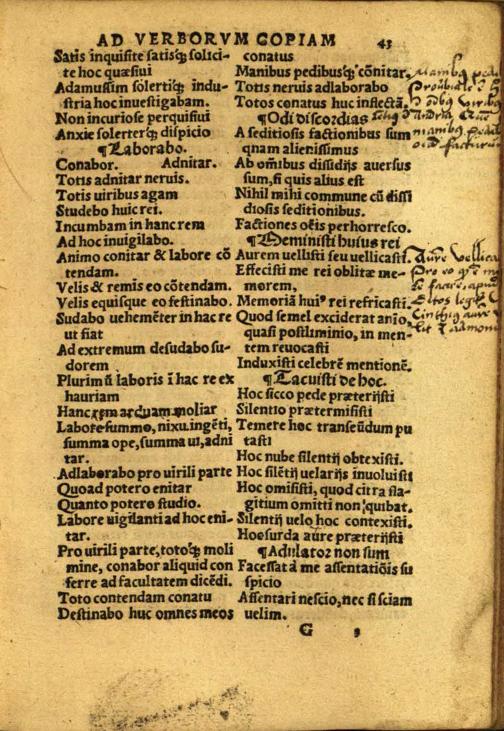 AD VERBORVM COPIAM 43
Satis inquisite satisq̃ solici-
te hoc quæsiui
Adamussim solertiq̃ indu-
stria hoc inuestigabam.
Non incuriose perquisiui
Anxie solerterq̃ dispicio
¶Laborabo.
Conabor. Adnitar.
Totis adnitar neruis.
Totis uiribus agam
Studebo huic rei.
Incumbam in hanc rem
Ad hoc inuigilabo.
Animo conitar & labore cō
tendam.
Velis & remis eo cōtendam.
Velis equisque eo festinabo.
Sudabo uehemēter in hac re
ut fiat
Ad extremum desudabo su-
dorem
Plurimũ laboris ī hac re ex
hauriam
Hanc rem arduam moliar
Labore summo, nixu ingēti,
summa ope, summa ui, adni
tar.
Adlaborabo pro uirili parte
Quoad potero enitar
Quanto potero studio.
Labore uigilanti ad hoc eni-
tar.
Pro uirili parte, totoq̃ moli
mine, conabor aliquid con
ferre ad facultatem dicēdi.
Toto contendam conatu
Destinabo huc omnes meos
conatus
Manibus pedibusq̃ cōnitar.
Totis neruis adlaborabo
Totos conatus huc inflectā.
¶Odi discordias
A seditiosis factionibus sum
quam alienissimus
Ab om̄ibus dissidijs auersus
sum, si quis alius est
Nihil mihi commune cū dissi
diosis seditionibus.
Factiones oēis perhorresco.
¶Meministi huius rei
Aurem uellisti seu uellicasti.
Effecisti me rei oblitæ me-
morem,
Memoriā huiꝰ rei refricasti.
Quod semel exciderat anīo,
quasi postliminio, in men-
tem reuocasti
Induxisti celebrē mentionē.
¶Tacuisti de hoc.
Hoc sicco pede præterijsti
Silentio prætermisisti
Temere hoc transeūdum pu
tasti
Hoc nube silentij obtexisti.
Hoc silētij uelarijs inuoluisti
Hoc omisisti, quod citra fla-
gitium omitti non quibat.
Silentij uelo hoc contexisti.
Hoc surda aure præterijsti
¶Adulator non sum
Facessat á me assentatiōis su
spicio
Assentari nescio, nec si sciam
uelim.
G